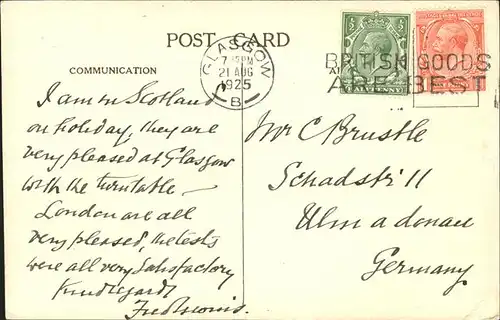 POST CARD
COMMUNICATION
GLASGOW
7 15PM
21 AUG
1925
B
BRITISH GOODS
ARE BEST
HALFPENNY
I am in Scotland
on holiday, they are
very pleased at Glasgow
with the turntable –
London are all
very pleased, the tests
were all very Satisfactory
Kind regards
Mr C Brustle
Schadstr 11
Ulm a donau
Germany